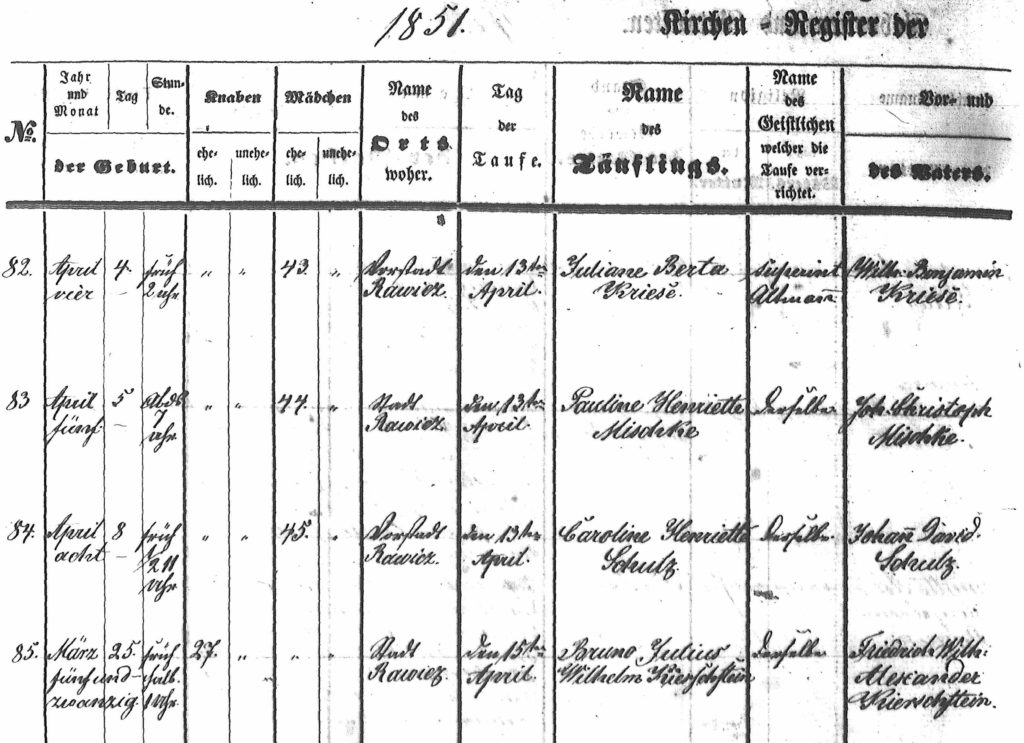 1851.
Kirchen-Register der
No.
Jahr und Monat
Tag
Stunde.
der Geburt.
Knaben
ehelich.
unehelich.
Mädchen
ehelich.
unehelich.
Name des Orts woher.
Tag der Taufe.
Name des Täuflings.
Name des Geistlichen welcher die Taufe verrichtet.
Vor- und
des Vaters.
82. April 4. früh " " 43. " Vorstadt den 13ten Juliane Berta Superint Wilh. Benjamin
vier – 2 Uhr Rawicz. April. Kriese. Altmann Kriese.
83 April 5 Abds " " 44. " Stadt den 13ten Pauline Henriette Derselbe Joh. Christoph
fünf – 7 Uhr Rawicz. April. Mischke Mischke.
84. April 8 früh " " 45. " Vorstadt den 13ten Caroline Henriette Derselbe Johann David
acht – 1/2 11 Uhr Rawicz. April. Schulz. Schulz.
85. März 25. früh 27. " " " Stadt den 15ten Bruno Julius Derselbe Friedrich Wilh:
fünf und halb " Rawicz. April. Wilhelm Kierschstein Alexander
zwanzig. 1 Uhr Kierschstein.